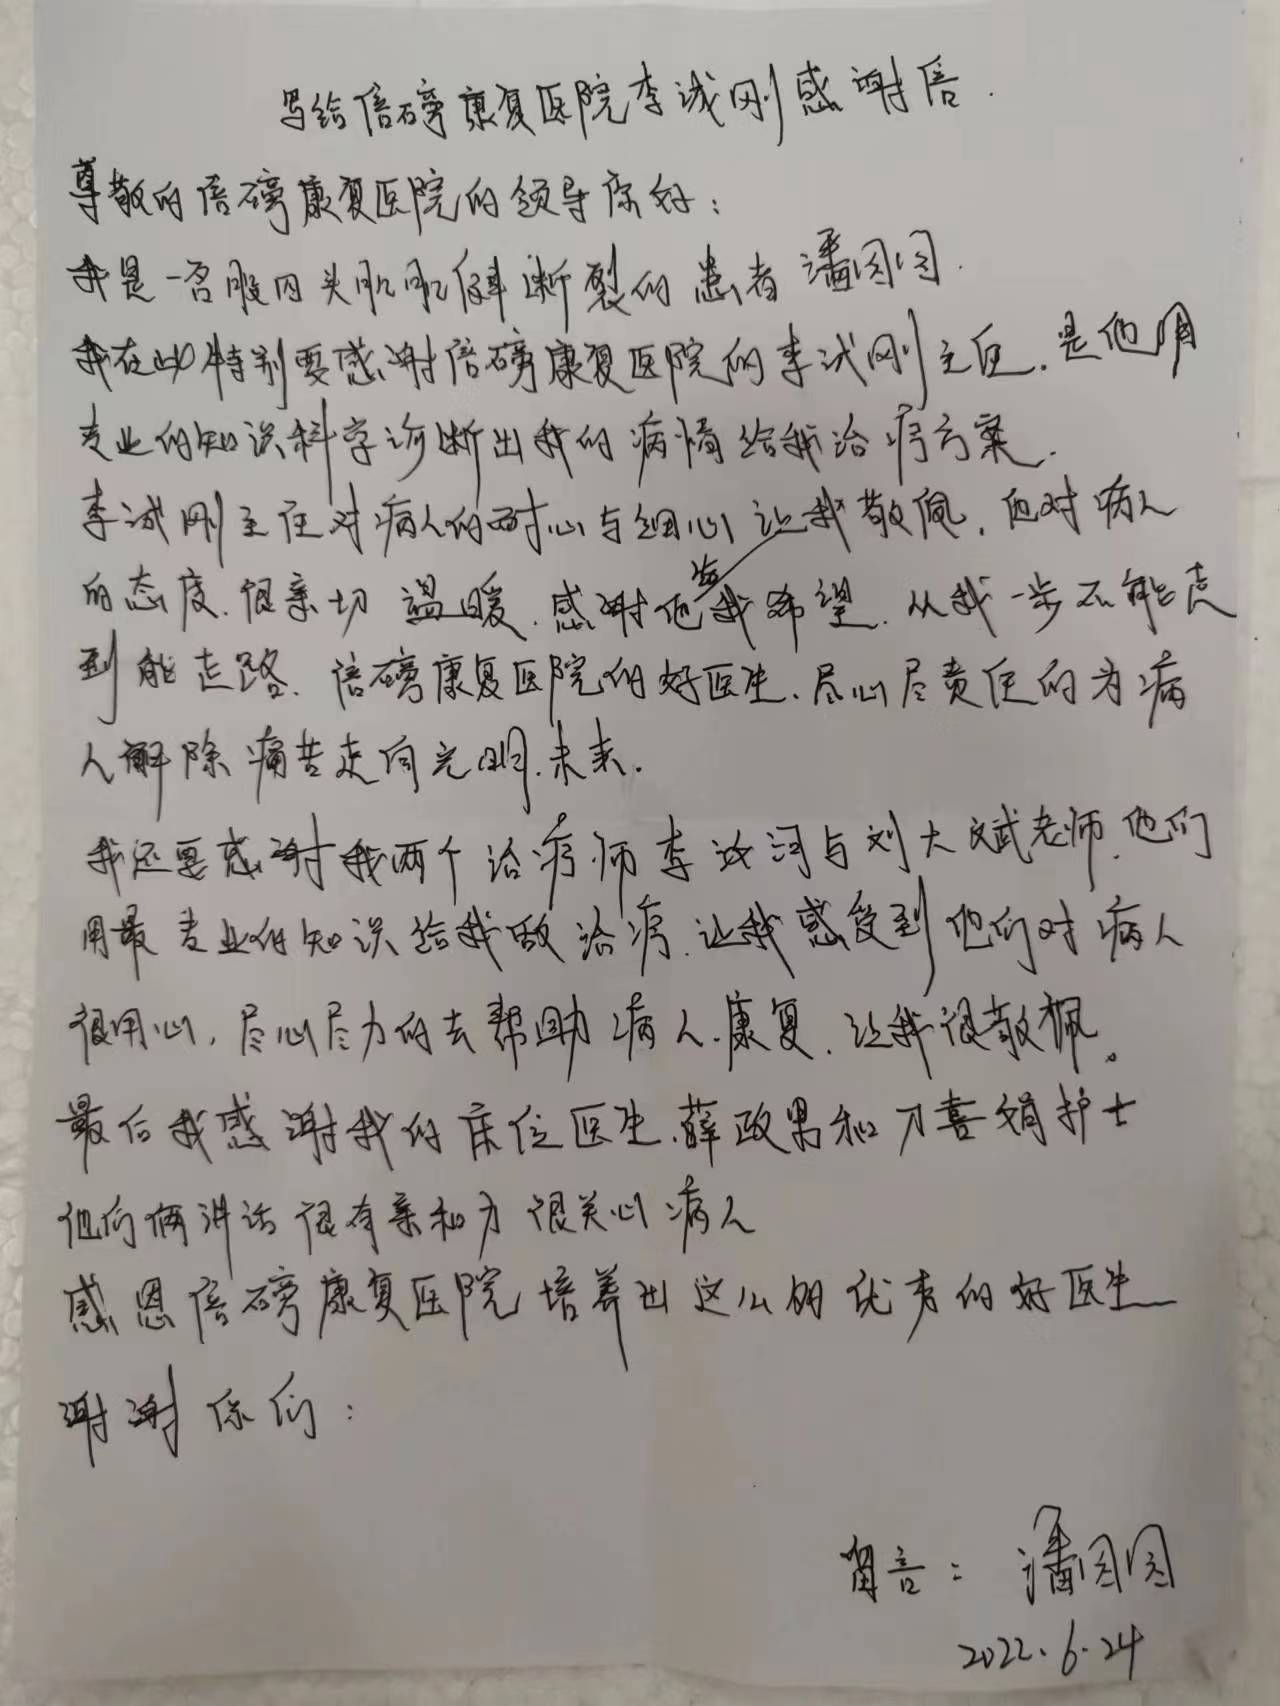 写给倍磅康复医院李诚刚感谢信.
尊敬的倍磅康复医院的领导你好:
我是一名股四头肌肌腱断裂的患者潘园园.
我在此特别要感谢倍磅康复医院的李诚刚主任.是他用
专业的知识科学诊断出我的病情给我治疗方案.
李诚刚主任对病人的耐心与细心让我敬佩.他对病人
的态度.很亲切 温暖.感谢他给我希望.从我一步不能走
到能走路.倍磅康复医院的好医生.尽心尽责任的为病
人解除痛苦走向光明.未来.
我还要感谢我两个治疗师李汝洞与刘大斌老师.他们
用最专业的知识给我做治疗.让我感受到他们对病人
很用心,尽心尽力的去帮助病人.康复.让我很敬佩。
最后我感谢我的床位医生.薛政男和刀喜娟护士
他们俩讲话很有亲和力很关心病人
感恩倍磅康复医院培养出这么的优秀的好医生
谢谢你们:
留言:潘园园
2022.6.24